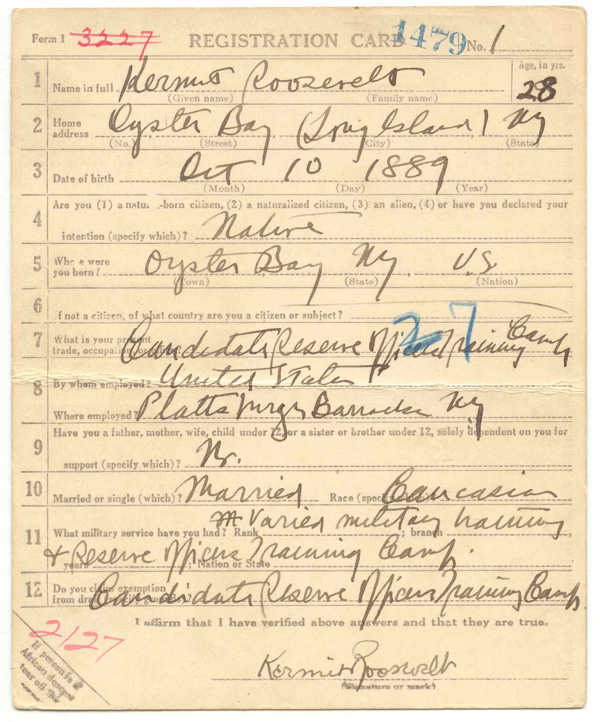 Form 1 3227 REGISTRATION CARD 1479 No. 1
1 Name in full Kermit Roosevelt Age, in yrs. 28
(Given name) (Family name)
2 Home address Oyster Bay (Long Island) NY
(No.) (Street) (City) (State)
3 Date of birth Oct 10 1889
(Month) (Day) (Year)
Are you (1) a natu -born citizen, (2) a naturalized citizen, (3) an alien, (4) or have you declared your
4 intention (specify which)? Native
5 Where were you born? Oyster Bay NY. U.S.
(Town) (State) (Nation)
6 If not a citizen, of what country are you a citizen or subject?
27
7 What is your present trade, occupation Candidate Reserve Officers Training Camp
8 By whom employed? United States
Where employed? Plattsburgh Barracks NY
9 Have you a father, mother, wife, child under 12, or a sister or brother under 12, solely dependent on you for
support (specify which)? No.
10 Married or single (which)? Married Race (specify Caucasian
11 What military service have you had? Rank Varied military training ; branch
& Reserve Officers Training Camp.
years ; Nation or State
12 Do you claim exemption from draft Candidate Reserve Officers Training Camp.
I affirm that I have verified above answers and that they are true.
2/27
If person is of
African descent
tear off this
Kermit Roosevelt
(Signature or mark)